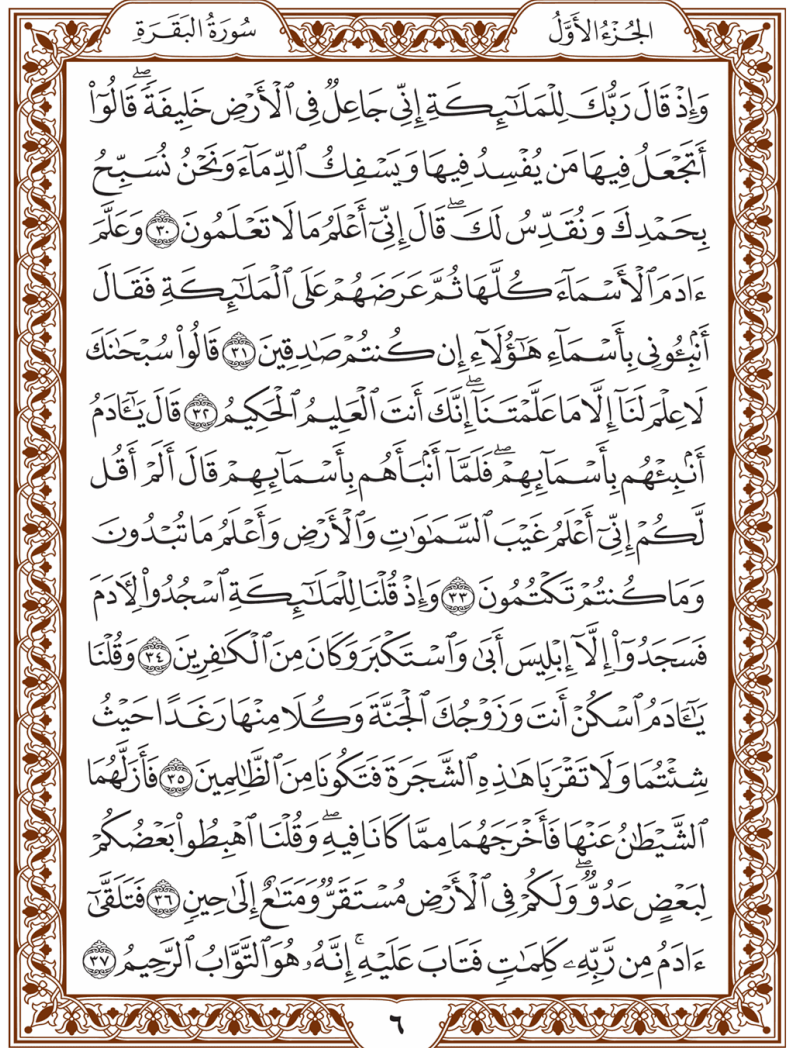 الجُزْءُ الأَوَّلُ
سُورَةُ البَقَرَةِ
وَإِذْ قَالَ رَبُّكَ لِلْمَلَٰٓئِكَةِ إِنِّي جَاعِلٌ فِي ٱلْأَرْضِ خَلِيفَةًۖ قَالُوٓاْ
أَتَجْعَلُ فِيهَا مَن يُفْسِدُ فِيهَا وَيَسْفِكُ ٱلدِّمَآءَ وَنَحْنُ نُسَبِّحُ
بِحَمْدِكَ وَنُقَدِّسُ لَكَۖ قَالَ إِنِّيٓ أَعْلَمُ مَا لَا تَعْلَمُونَ ٣٠ وَعَلَّمَ
ءَادَمَ ٱلْأَسْمَآءَ كُلَّهَا ثُمَّ عَرَضَهُمْ عَلَى ٱلْمَلَٰٓئِكَةِ فَقَالَ
أَنۢبِـُٔونِي بِأَسْمَآءِ هَٰٓؤُلَآءِ إِن كُنتُمْ صَٰدِقِينَ ٣١ قَالُواْ سُبْحَٰنَكَ
لَا عِلْمَ لَنَآ إِلَّا مَا عَلَّمْتَنَآۖ إِنَّكَ أَنتَ ٱلْعَلِيمُ ٱلْحَكِيمُ ٣٢ قَالَ يَٰٓـَٔادَمُ
أَنۢبِئْهُم بِأَسْمَآئِهِمْۖ فَلَمَّآ أَنۢبَأَهُم بِأَسْمَآئِهِمْ قَالَ أَلَمْ أَقُل
لَّكُمْ إِنِّيٓ أَعْلَمُ غَيْبَ ٱلسَّمَٰوَٰتِ وَٱلْأَرْضِ وَأَعْلَمُ مَا تُبْدُونَ
وَمَا كُنتُمْ تَكْتُمُونَ ٣٣ وَإِذْ قُلْنَا لِلْمَلَٰٓئِكَةِ ٱسْجُدُواْ لِأٓدَمَ
فَسَجَدُوٓاْ إِلَّآ إِبْلِيسَ أَبَىٰ وَٱسْتَكْبَرَ وَكَانَ مِنَ ٱلْكَٰفِرِينَ ٣٤ وَقُلْنَا
يَٰٓـَٔادَمُ ٱسْكُنْ أَنتَ وَزَوْجُكَ ٱلْجَنَّةَ وَكُلَا مِنْهَا رَغَدًا حَيْثُ
شِئْتُمَا وَلَا تَقْرَبَا هَٰذِهِ ٱلشَّجَرَةَ فَتَكُونَا مِنَ ٱلظَّٰلِمِينَ ٣٥ فَأَزَلَّهُمَا
ٱلشَّيْطَٰنُ عَنْهَا فَأَخْرَجَهُمَا مِمَّا كَانَا فِيهِۖ وَقُلْنَا ٱهْبِطُواْ بَعْضُكُمْ
لِبَعْضٍ عَدُوٌّۖ وَلَكُمْ فِي ٱلْأَرْضِ مُسْتَقَرٌّ وَمَتَٰعٌ إِلَىٰ حِينٍ ٣٦ فَتَلَقَّىٰٓ
ءَادَمُ مِن رَّبِّهِۦ كَلِمَٰتٍ فَتَابَ عَلَيْهِۚ إِنَّهُۥ هُوَ ٱلتَّوَّابُ ٱلرَّحِيمُ ٣٧
٦